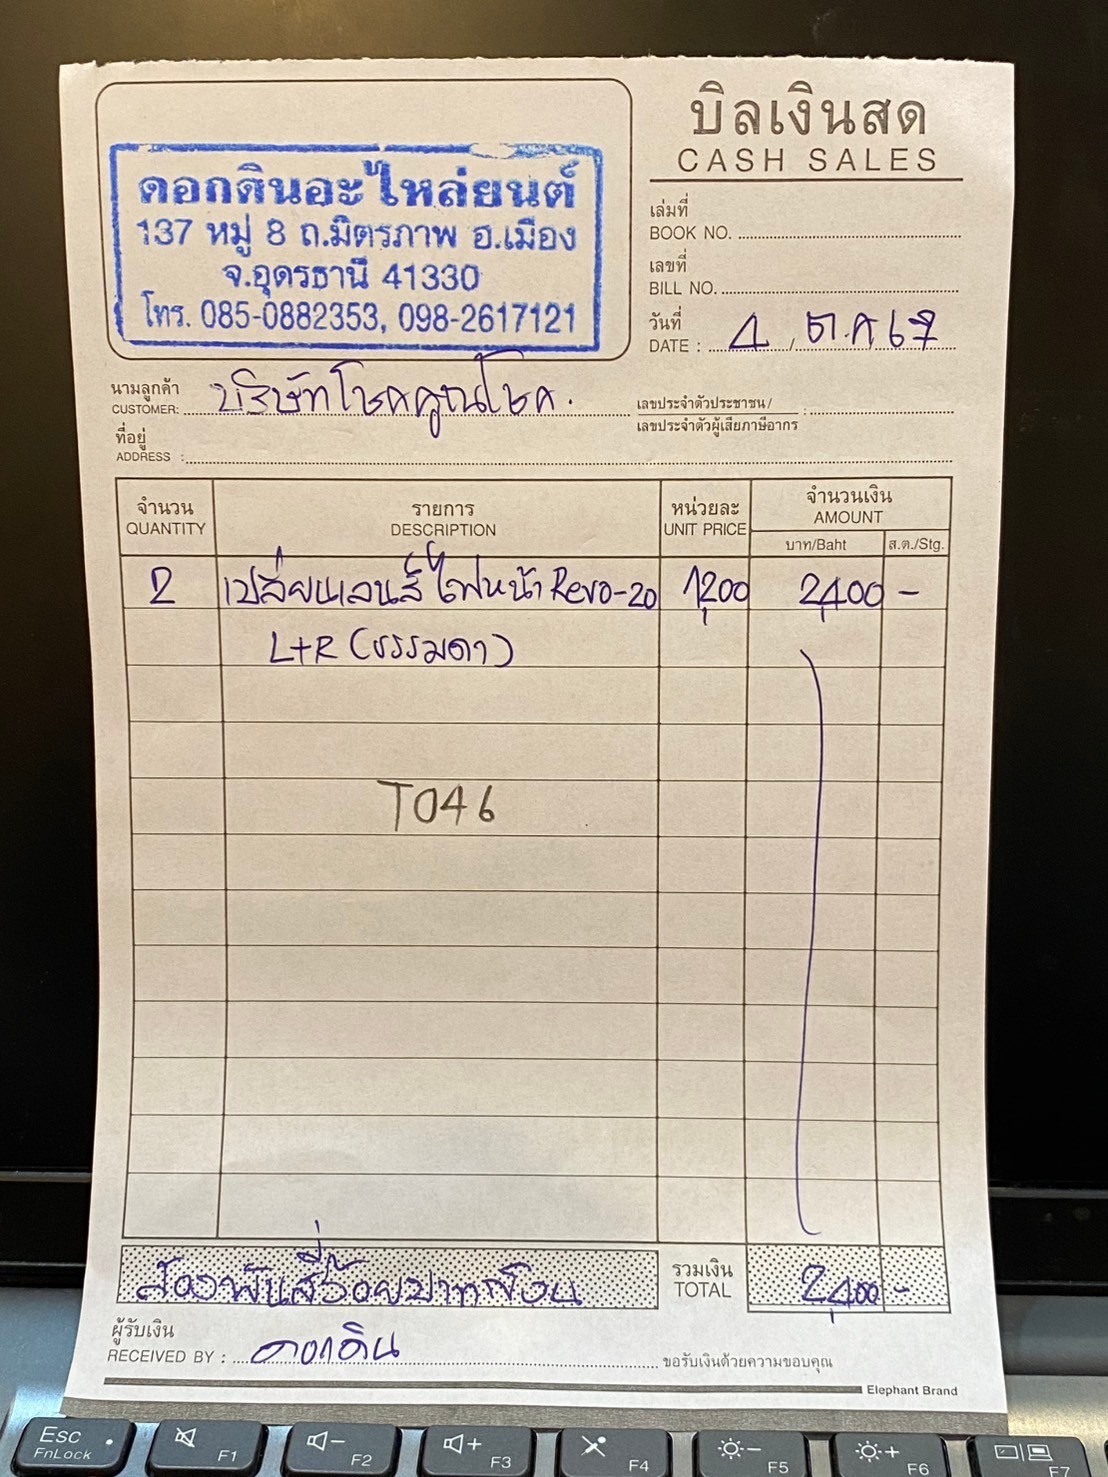 บิลเงินสด
CASH SALES
ดอกดินอะไหล่ยนต์
137 หมู่ 8 ถ.มิตรภาพ อ.เมือง
จ.อุดรธานี 41330
โทร. 085-0882353, 098-2617121
เล่มที่
BOOK NO.
เลขที่
BILL NO.
วันที่
DATE : 4 / ต.ค 67
นามลูกค้า
CUSTOMER: บริษัทโชคคูณโชค.
เลขประจำตัวประชาชน /
เลขประจำตัวผู้เสียภาษีอากร :
ที่อยู่
ADDRESS :
จำนวน รายการ หน่วยละ จำนวนเงิน
QUANTITY DESCRIPTION UNIT PRICE AMOUNT
บาท/Baht ส.ต./Stg.
2 เปลี่ยนเลนส์ไฟหน้า Revo-20 1,200 2,400 -
L+R (ธรรมดา)
T046
สองพันสี่ร้อยบาทถ้วน
รวมเงิน
TOTAL 2,400 -
ผู้รับเงิน
RECEIVED BY : ดอกดิน
ขอรับเงินด้วยความขอบคุณ
Elephant Brand
Esc
FnLock
F1
F2
F3
F4
F5
F6
F7